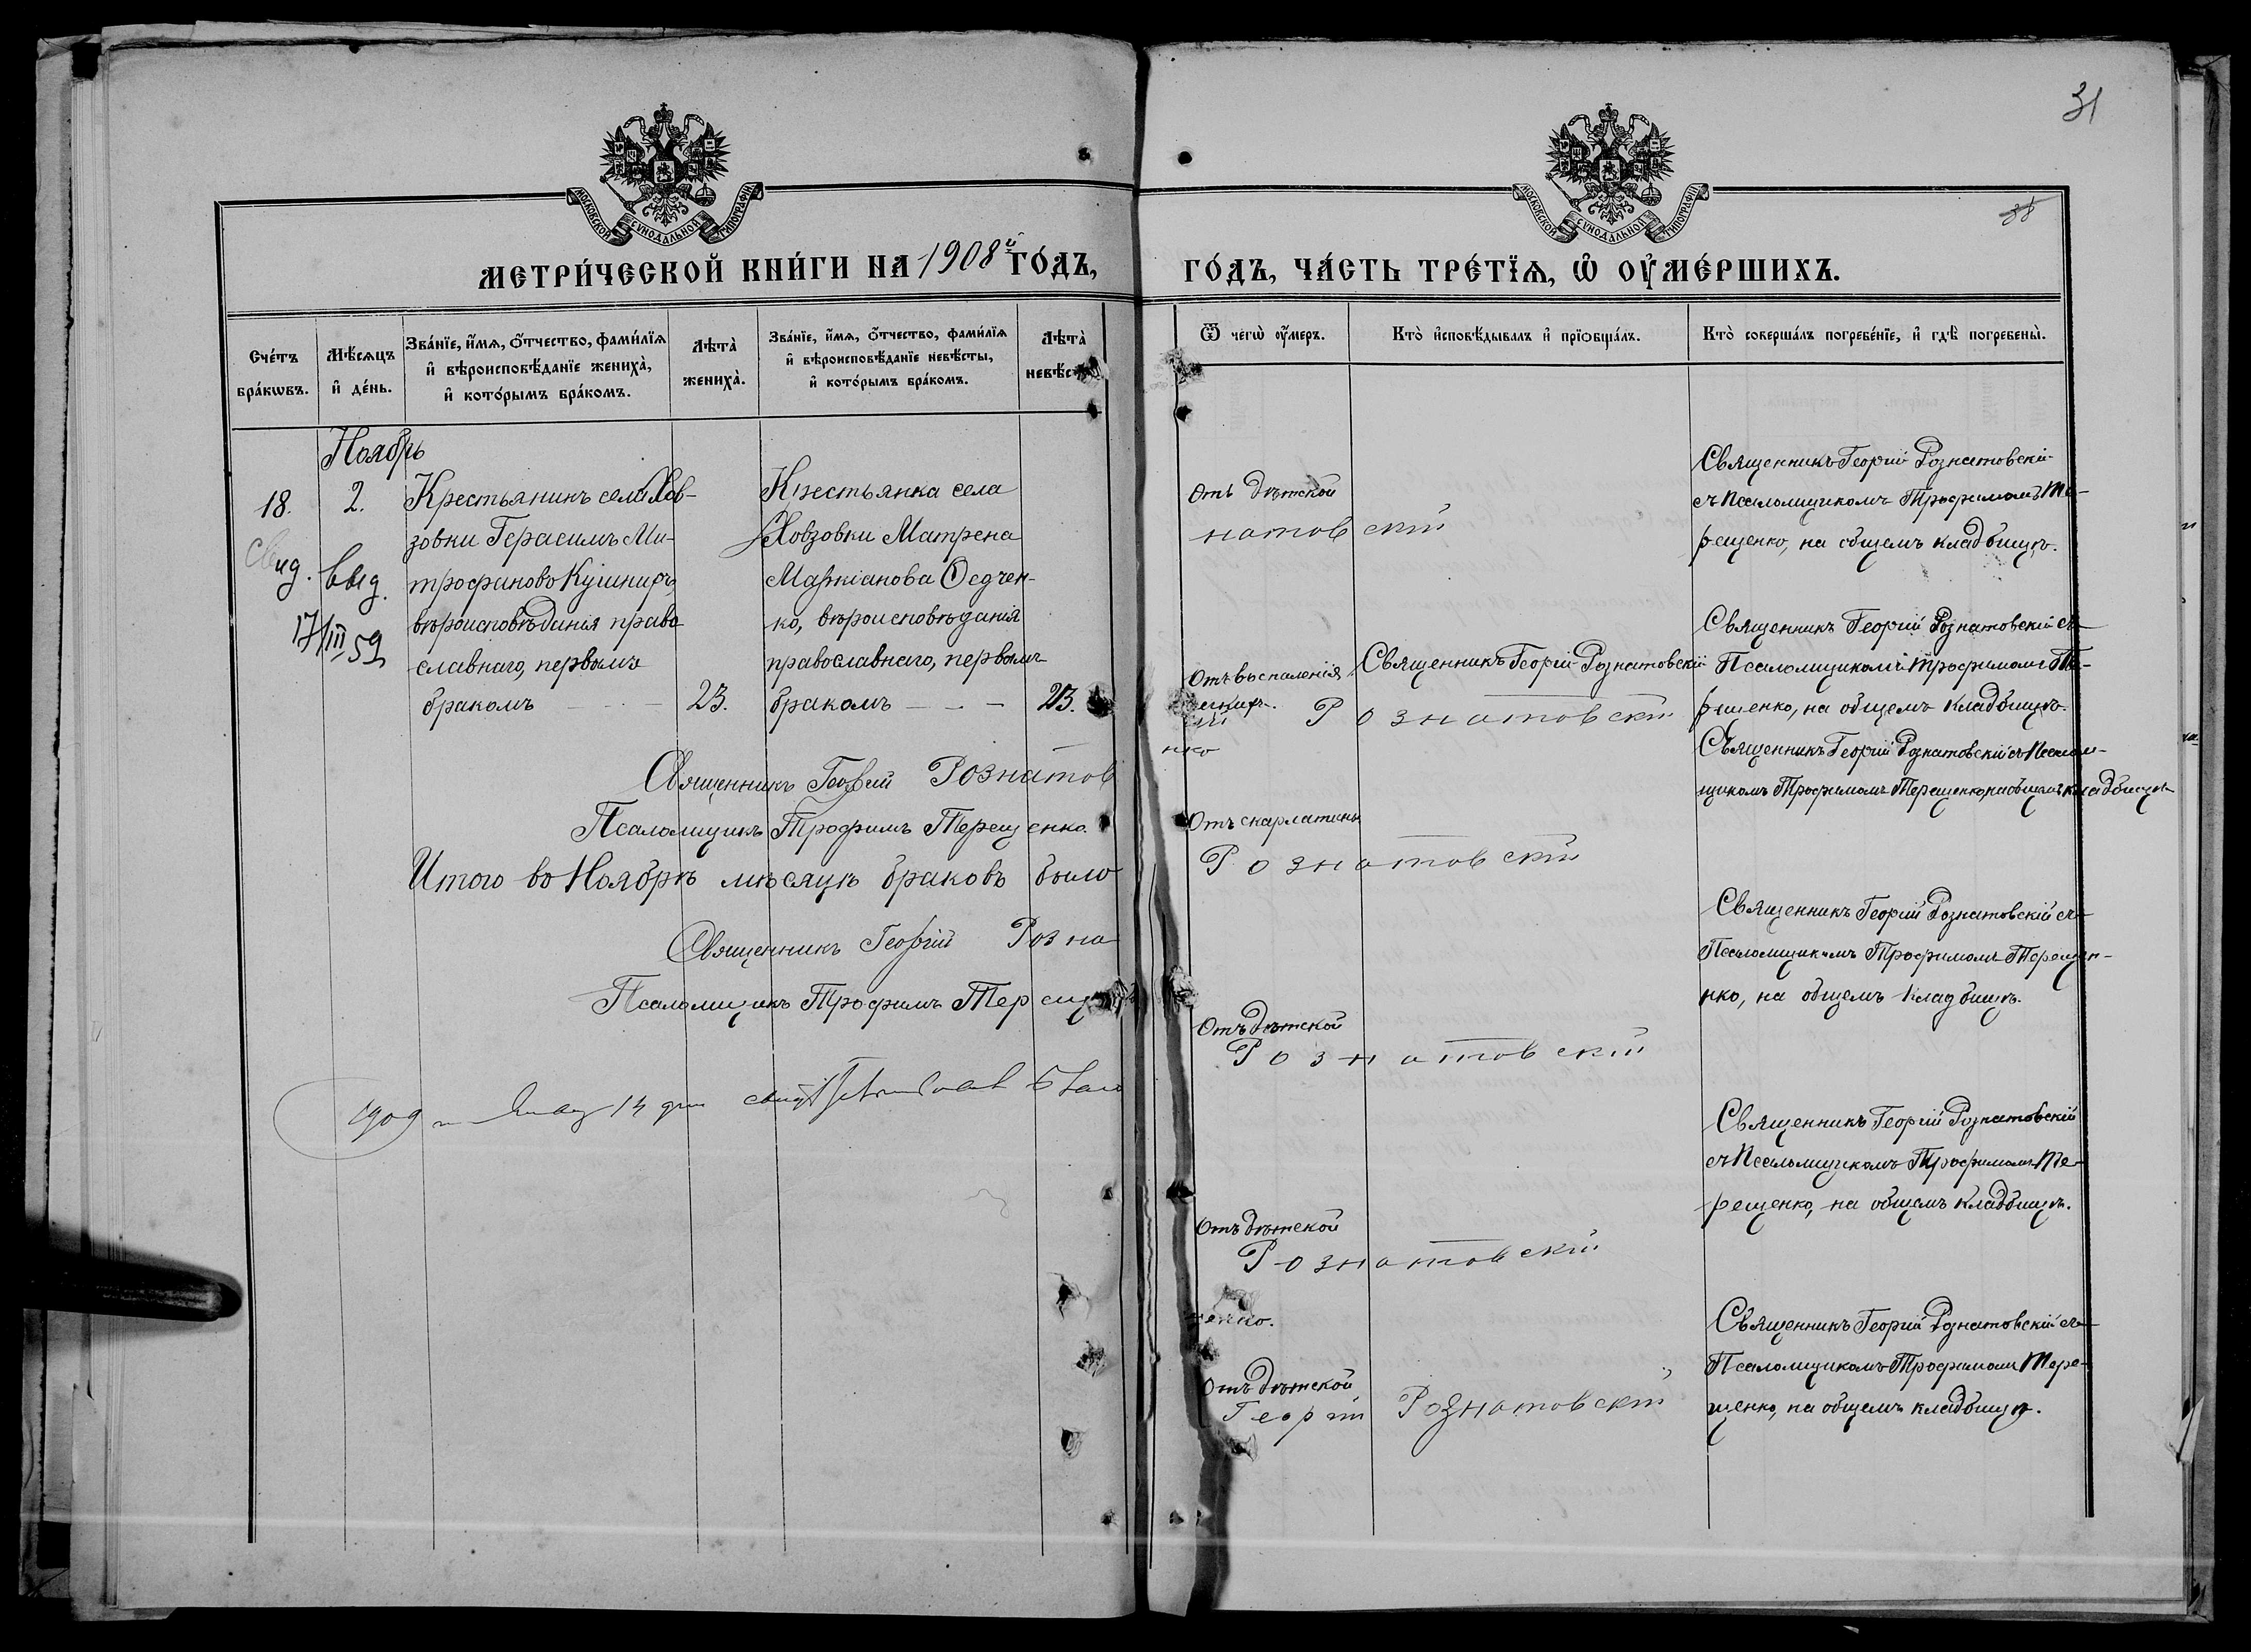 31
38
МОСКОВСКОЙ СУНОДАЛЬНОЙ ТИПОГРАФІИ
МЕТРИ́ЧЕСКОЙ КНИ́ГИ НА 1908й ГО́ДЪ,
Сче́тъ бра́кωвъ.
Мѣ́сяцъ и҆ де́нь.
Зва́нїе, и҆́мѧ, ѻ҆́тчество, фами́лїѧ
и҆ вѣроисповѣ́данїе жениха̀,
и҆ кото́рымъ бра́комъ.
Лѣта̀ жениха̀.
Зва́нїе, и҆́мѧ, ѻ҆́тчество, фами́лїѧ
и҆ вѣроисповѣ́данїе невѣ́сты,
и҆ кото́рымъ бра́комъ.
Лѣта̀
Ноябрь
18.
2.
Свид.
выд.
17/III 59
Крестьянинъ села Хов-
зовки Герасимъ Ми-
трофановъ Кушниръ,
вѣроисповѣданія право
славнаго, первымъ
бракомъ — — — 23.
Крестьянка села
Ховзовки Матрена
Маркіанова Ѳедчен-
ко, вѣроисповѣданія
православнаго, первымъ
бракомъ — — — 23.
Священникъ Георгій Рознатов
Псаломщикъ Трофимъ Терещенко.
Итого въ Ноябрѣ мѣсяцѣ браковъ было
Священникъ Георгій Розна
Псаломщикъ Трофимъ Терещ
1909
МОСКОВСКОЙ СУНОДАЛЬНОЙ ТИПОГРАФІИ
ГО́ДЪ, ЧА́СТЬ ТРЕ́ТЇѦ, Ѡ҆ ОУ҆МЕ́РШИХЪ.
Ѿ чегѡ̀ оу҆́меръ.
Кто̀ и҆сповѣ́дывалъ и҆ прїѻбща́лъ.
Кто̀ соверша́лъ погребе́нїе, и҆ гдѣ̀ погребены̀.
Отъ дѣтской
натовскій
Священникъ Георгій Рознатовскій
съ Псаломщикомъ Трофимомъ Те-
рещенко, на общемъ кладбищѣ.
Отъ воспаленія
Священникъ Георгій Рознатовскій
Рознатовскій
нко
Священникъ Георгій Рознатовскій съ
Псаломщикомъ Трофимомъ Те-
рещенко, на общемъ кладбищѣ.
Отъ скарлатины
Рознатовскій
Священникъ Георгій Рознатовскій съ Псалом-
щикомъ Трофимомъ Терещенко, на общемъ кладбищѣ
Отъ дѣтской
Рознатовскій
Священникъ Георгій Рознатовскій съ
Псаломщикомъ Трофимомъ Терещен-
нко, на общемъ кладбищѣ.
Отъ дѣтской
Рознатовскій
Священникъ Георгій Рознатовскій
съ Псаломщикомъ Трофимомъ Те-
рещенко, на общемъ кладбищѣ.
Отъ дѣтской
Георгій Рознатовскій
Священникъ Георгій Рознатовскій съ
Псаломщикомъ Трофимомъ Тере-
щенко, на общемъ кладбищѣ.